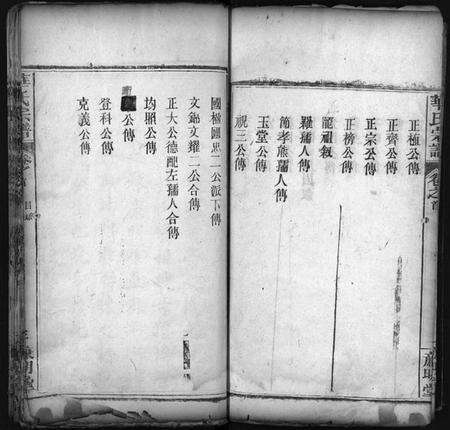 華氏宗譜 卷之首
正極公傳
正齊公傳
正宗公傳
正榜公傳
孺人傳
節孝熊孺人傳
玉堂公傳
祝三公傳
國極國忠二公派下傳
文錦文耀二公合傳
正大公德配左孺人合傳
均照公傳
公傳
登科公傳
克義公傳